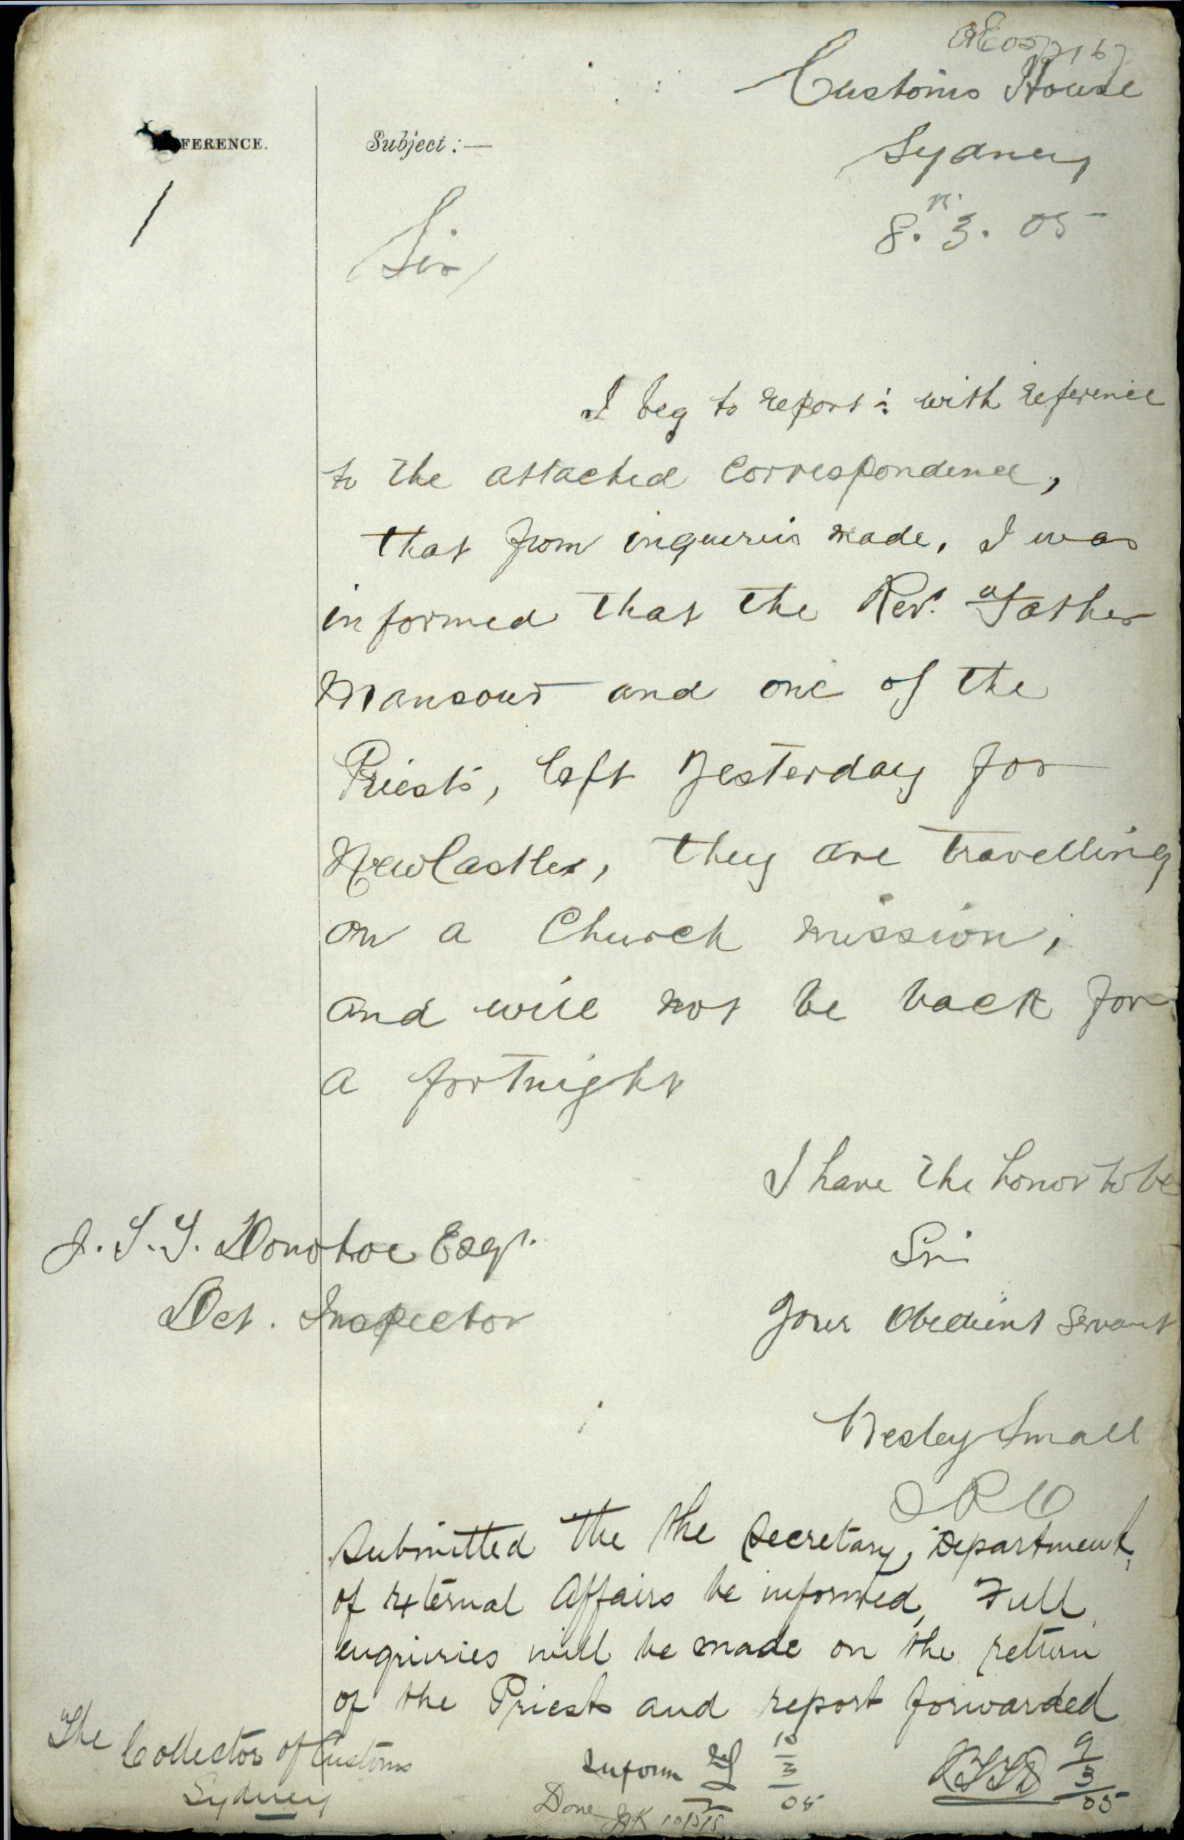 Customs House
REFERENCE.
Subject:—
Sydney
8. 3. 05
Sir
I beg to report: with reference
to the attached Correspondence,
that from inqueries made, I was
informed that the Rev. Father
Mansour and one of the
Priests, left Yesterday for
NewCastle, they are travelling
on a Church mission,
and will not be back for
a fortnight
I have the honor to be
Sir
Your Obedient Servant
J. T. T. Donohoe Esqr.
Det. Inspector
Wesley Small
Submitted the the Secretary, Department,
of External Affairs be informed, Full
enquiries will be made on the return
of the Priests and report forwarded
The Collector of Customs
Sydney
Inform
10
3
05
9
3
05
Done